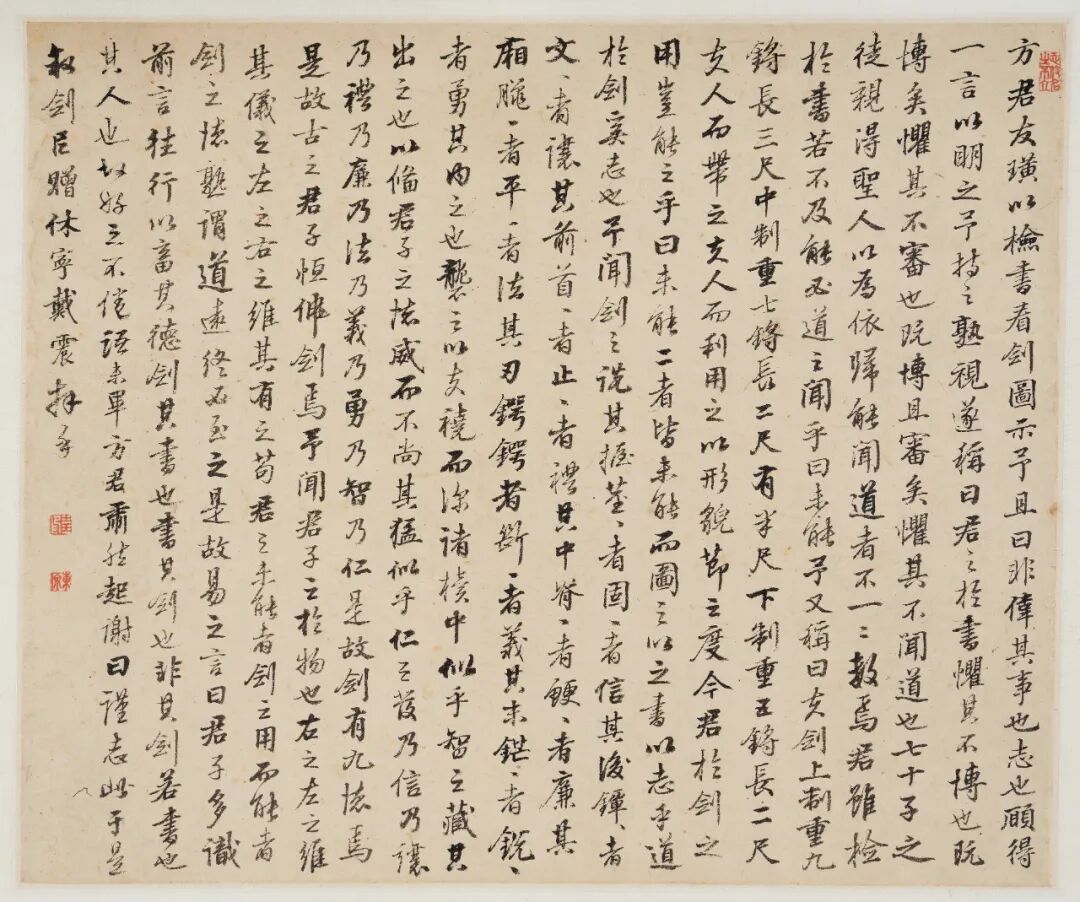 方君友璜以檢書看劍圖示予且曰非偉其事也志也願得
一言以明之予持之熟視遂稱曰君之於書懼其不博也既
博矣懼其不審也既博且審矣懼其不聞道也七十子之
徒親得聖人以為依歸能聞道者不一二數焉君雖檢
於書若不及能必道之聞乎曰未能予又稱曰夫劍上制重九
鋝長三尺中制重七鋝長二尺有半尺下制重五鋝長二尺
夫人而舉之夫人而利用之以形貌節之度今君於劍之
用豈能之乎曰未能二者皆未能而圖之以之書以志乎道
於劍奚志也予聞劍之說其握莖、者固、者信其後鐔、者
文、者讓其前首、者止、者禮其中脊、者鯁、者廉其
廂臘、者平、者法其刃鍔鍔者斷、者義其末鋩、者銳、
者勇其內之也襲之以夫襓而深諸櫝中似乎智之藏其
出之也以脩君子之德威而不尚其猛似乎仁之發乃信乃讓
乃禮乃廉乃法乃義乃勇乃智乃仁是故劍有九德焉
是故古之君子恒佩劍焉予聞君子之於物也右之左之維
其儀之左之右之維其有之苟君之未能者劍之用而能者
劍之德孰謂道遠終不至之是故易之言曰君子多識
前言往行以畜其德劍其書也書其劍也非其劍若書也
其人也故好之不倦語未畢方君肅然起謝曰謹志此于是
叙劍臣贈休寧戴震拜手